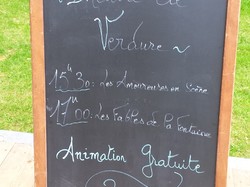 Verdure ~
15h30: Les Amoureuses en Scène
17h00: Les Fables de la Fontaine
Animation Gratuite